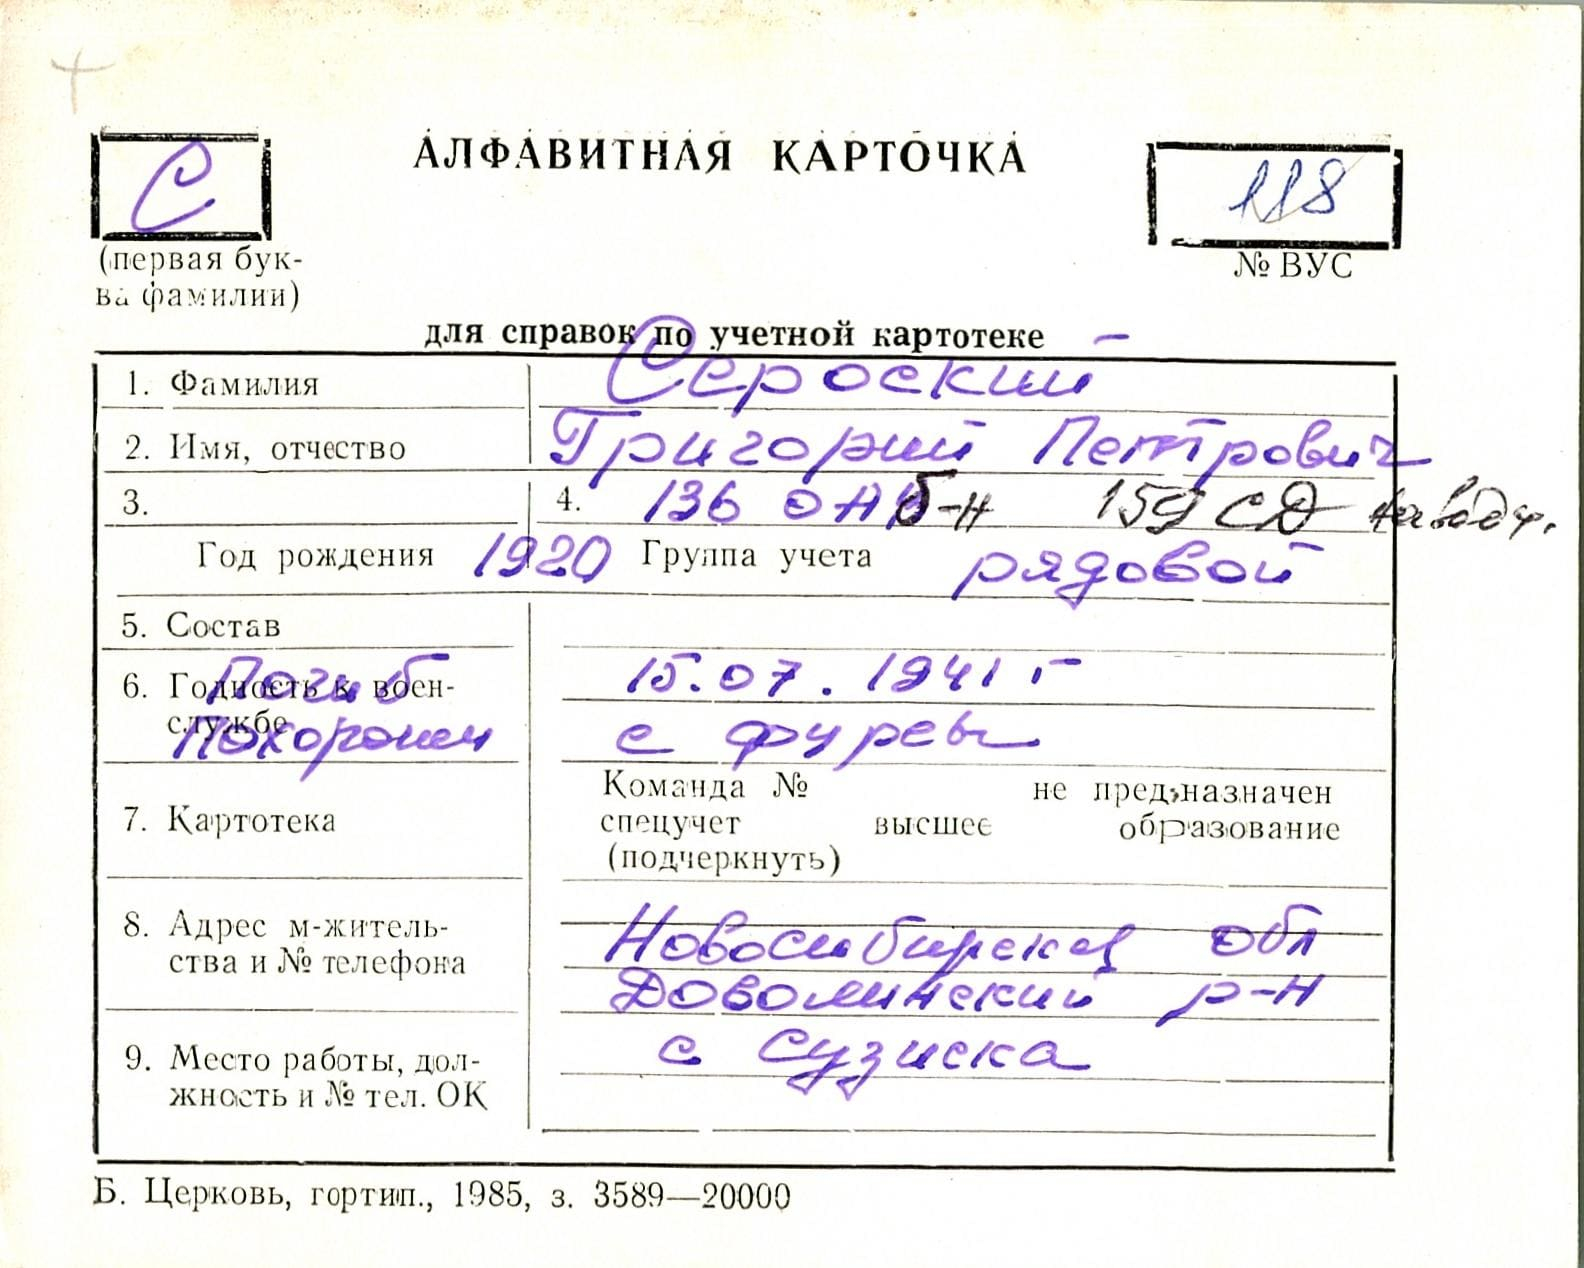 АЛФАВИТНАЯ КАРТОЧКА
С
118
(первая бук-
ва фамилии)
№ ВУС
для справок по учетной картотеке
1. Фамилия Сероский
2. Имя, отчество Григорий Петрович
3. 4. 136 б-н 159 СД
Год рождения 1920 Группа учета рядовой
5. Состав
6. Годность к воен-
службе
Погиб 15.07.1941 г
Похоронен с Фуревы
7. Картотека
Команда № не предназначен
спецучет высшее образование
(подчеркнуть)
8. Адрес м-житель-
ства и № телефона
Новосибирская обл
Доволинский р-н
с Сузиска
9. Место работы, дол-
жность и № тел. ОК
Б. Церковь, гортип., 1985, з. 3589—20000